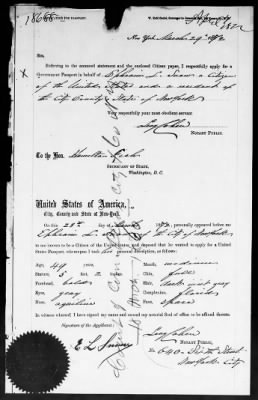 18666
New York March 29th 1872
Sir:
Referring to the enclosed statement and Citizen papers, I respectfully apply for a
Government Passport in behalf of Ephraim L. Snow a citizen
of the United States and a resident of
the City County & State of New York
respectfully your most obedient servant
NOTARY PUBLIC.
To the Hon. Hamilton Fish
SECRETARY OF STATE,
Washington, D. C.
United States of America.
City, County and State of New-York.
On this 28th day of March 1872, personally appeared before me
Ephraim L. Snow of the City of New York
to me known to be a Citizen of the United States and deposed that he wanted to apply for a United
States Passport, whereupon I took his personal description, to wit:
Age, 49 years
Stature, 5 ft.
Forehead, bald
Eyes, gray
Nose, aquiline
Mouth, medium
Chin, full
Hair, dark mixt gray
Complexion, florid
Face, spare
In witness whereof I have signed my name and annexed my notarial Seal of office so affirmed thereto.
Signature of the Applicant:
E L Snow
NOTARY PUBLIC.
No. 640. Sixth Street
New York City